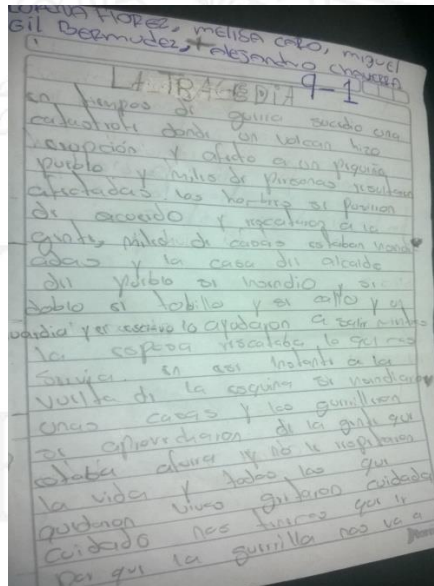 FLOREZ, MELISA CARO, MIGUEL
Gil BERMUDEZ, Alejandro
LA TRAGEDIA 9-1
En tiempos de guerra sucedio una
catastrofe donde un volcan hizo
erupción y afecto a un pequeño
pueblo y miles de personas resultaron
afectadas los hombres se pusieron
de acuerdo y rescataron a la
gente, miles de casas estaban
y la casa del alcalde
del pueblo se hundio y se
doblo el tobillo y se callo y el
guardia y el lo ayudaron a salir mientras
la esposa rescataba lo que mas
servia. En ese instante a la
vuelta de la esquina se
unas casas y los guerrilleros
se aprovecharon de la gente que
estaba afuera y no le respetaron
la vida y todos los que
quedaron vivos gritaron cuidado
cuidado nos tenemos que ir
por que la guerrilla nos va a